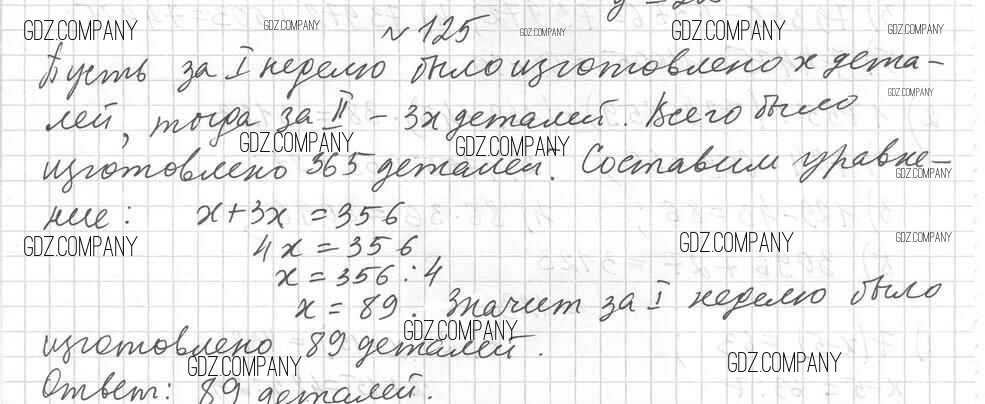 GDZ.COMPANY GDZ.COMPANY № 125 GDZ.COMPANY GDZ.COMPANY GDZ.COMPANY
Пусть за I неделю было изготовлено x дета-
GDZ.COMPANY
лей, тогда за II – 3x деталей. Всего было
GDZ.COMPANY GDZ.COMPANY
изготовлено 365 деталей. Составим уравне-
GDZ.COMPANY
ние: x+3x = 356
GDZ.COMPANY 4x = 356 GDZ.COMPANY GDZ.COMPANY
x = 356 : 4
x = 89. Значит за I неделю было
GDZ.COMPANY
изготовлено 89 деталей.
GDZ.COMPANY GDZ.COMPANY
Ответ: 89 деталей.